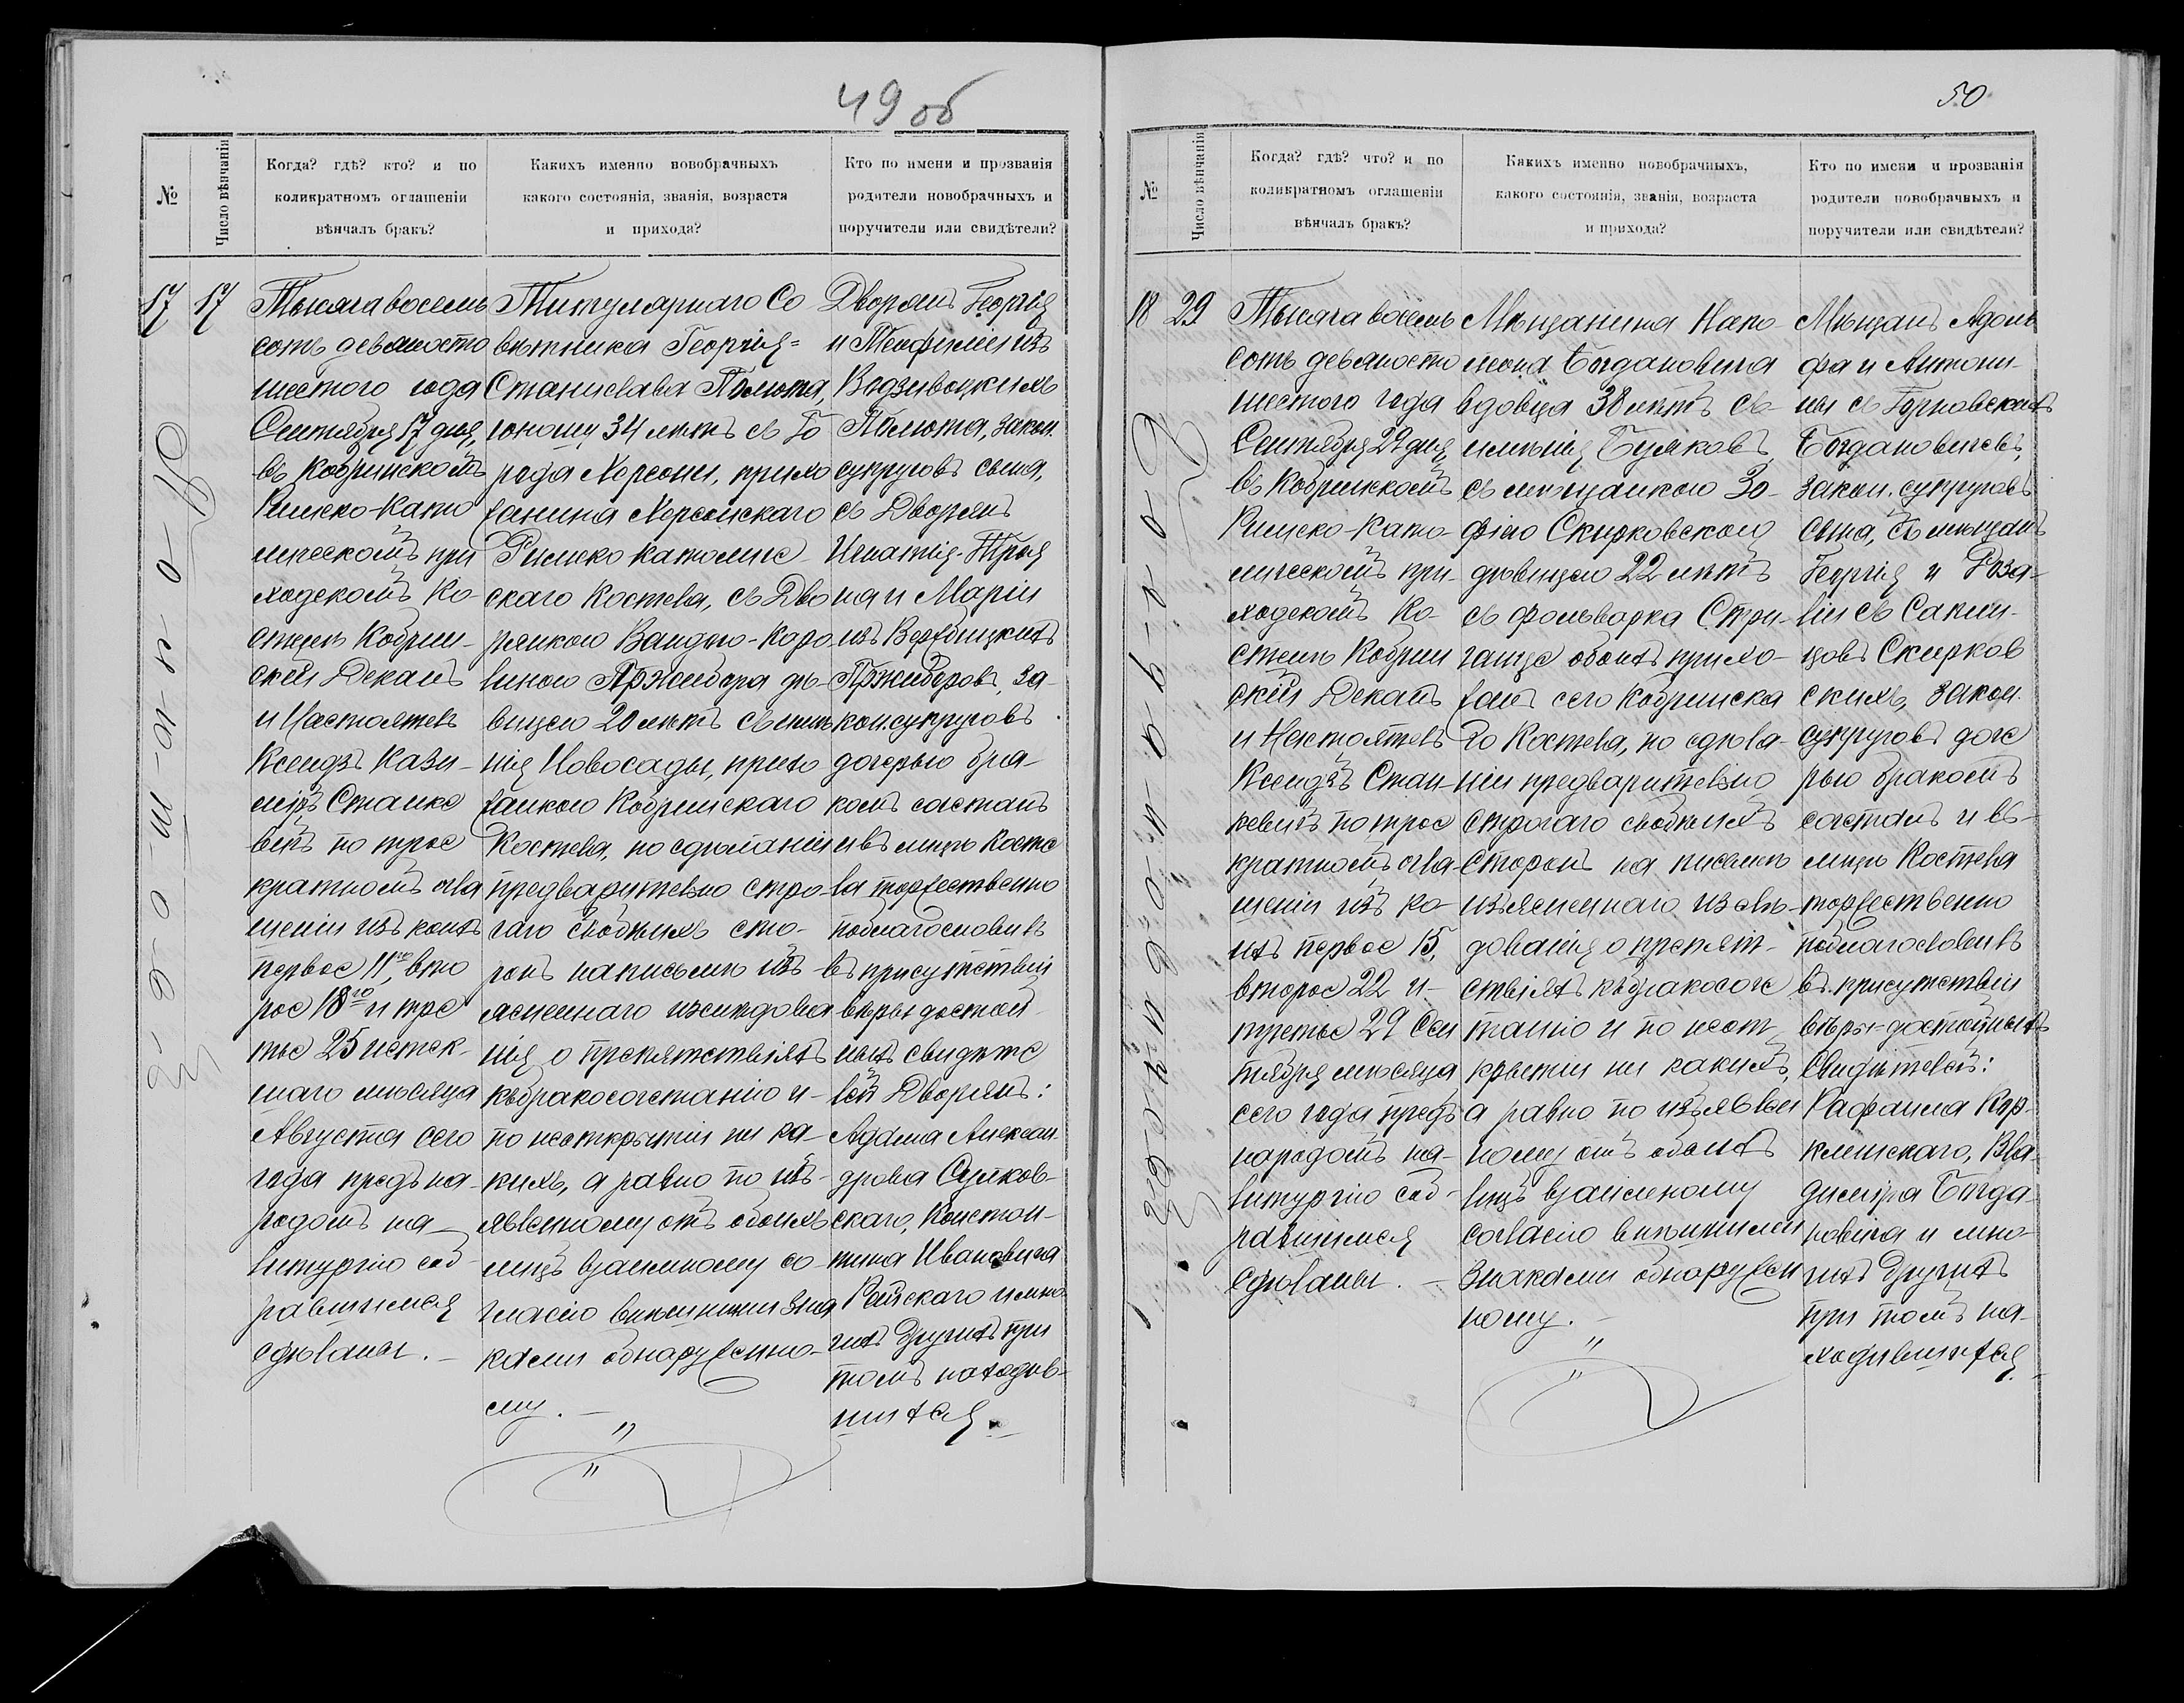 49 об
№
Число вѣнчанія
Когда? гдѣ? кто? и по
коликратномъ оглашеніи
вѣнчалъ бракъ?
Какихъ именно новобрачныхъ
какого состоянія, званія, возраста
и прихода?
Кто по имени и прозванія
родители новобрачныхъ и
поручители или свидѣтели?
17
17
Тысяча восемь
сотъ девяносто
шестого года
Сентября 17 дня,
въ Кобринскомъ
Римско-Като
лическомъ при
ходскомъ Ко-
стелѣ Кобрин-
скій Деканъ
и Настоятель
Ксендзъ Кази-
міръ Станке
вичъ по трое
кратномъ огла
шеніи изъ коихъ
первое 11го, вто
рое 18го и тре
тье 25 истек-
шаго мѣсяца
Августа сего
года предъ на-
родомъ на
литургію соб
равшимся
сдѣланы. —
Титулярнаго Со
вѣтника Георгія=
Станислава
юношу 34 лѣтъ съ Го
рода Херсони, прихо
жанина Херсонскаго
Римско католиче
скаго Костела, съ Дво
рянкою Вандою-Каро
линою Пржибора дѣ-
вицею 20 лѣтъ съ имѣ
нія Новосады, прихо
жанкою Кобринскаго
Костела, по сдѣланіи
предварительно стро-
гаго обоихъ сто-
ронъ на письмѣ изъ
ясненнаго изслѣдова
нія о препятствіяхъ
къ бракосочетанію и-
по неоткрытіи ни ка-
кихъ, а равно по изъ-
явленному отъ обоихъ
лицъ взаимному со-
гласію внѣшними зна
ками обнаруженно-
му. —
Дворянъ Георгія
и Теофиліи изъ
закон.
супруговъ сына,
съ Дворянъ
Игнатія-
на и Маріи
изъ Вержбицкихъ
Пржиборовъ, за-
кон. супруговъ
дочерью бра-
комъ сочеталъ
и въ лицѣ Косте
ла торжественно
поблагословилъ
въ присутствіи
вѣры достой
ныхъ свидѣте
лей Дворянъ:
Адама Алексан
дрова Сулков-
скаго, Констан-
тина Ивановича
Райскаго и мно
гихъ другихъ при
томъ находив-
шихся.
50
№
Число вѣнчанія
Когда? гдѣ? что? и по
коликратномъ оглашеніи
вѣнчалъ бракъ?
Какихъ именно новобрачныхъ,
какого состоянія, званія, возраста
и прихода?
Кто по имени и прозванія
родители новобрачныхъ и
поручители или свидѣтели?
18
29
Тысяча восемь
сотъ девяносто
шестого года
Сентября 29 дня
въ Кобринскомъ
Римско-Като-
лическомъ при-
ходскомъ Ко-
стелѣ Кобрин
скій Деканъ
и Настоятель
Ксендзъ Стан-
кевичъ по трое
кратномъ огла-
шеніи изъ ко-
ихъ первое 15,
второе 22 и-
третье 29 Сен
тября мѣсяца
сего года предъ
народомъ на-
литургію соб-
равшимся
сдѣланы. —
Мѣщанина Напо-
леона Богдановича
вдовца 38 лѣтъ съ-
имѣнія Буяковъ
съ мѣщанкою Зо-
фіею Скирковскою
дѣвицею 22 лѣтъ
съ фольварка Стри-
ганца обоихъ прихо-
жанъ сего Кобринска
го Костела, по сдѣла-
ніи предварительно
строгаго обоихъ
сторонъ на письмѣ
изъясненнаго изслѣ-
дованія о препят-
ствіяхъ къ бракосоче
танію и по неот
крытіи ни какихъ,
а равно по изъявлен
ному отъ обоихъ
лицъ взаимному
согласію внѣшними
знаками обнаружен
ному. —
Мѣщанъ Адоль
фа и Антони-
ны съ Гурковскихъ
Богдановичевъ,
закон. супруговъ
сына, съ мѣщанъ
Георгія и Роза-
ліи съ Сапѣи-
цовъ Скирков
скихъ, закон.
супруговъ доче
рью бракомъ
сочеталъ и въ-
лицѣ Костела
торжественно
поблагословилъ
въ присутствіи
вѣры=достойныхъ
Свидѣтелей:
Рафаила Кор-
клинскаго, Вла-
диміра Богда-
новича и мно-
гихъ другихъ
при томъ на-
ходившихся.